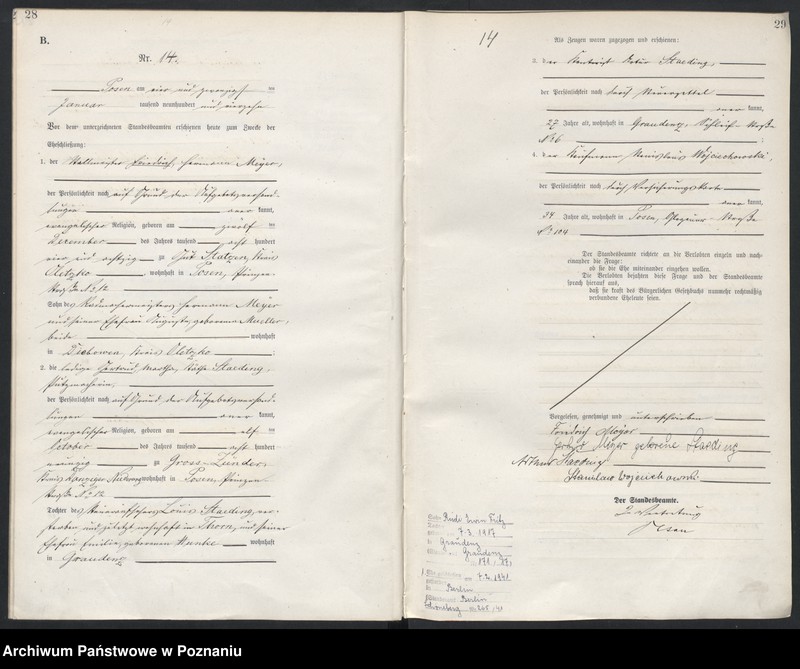 28
B.
Nr. 14.
Posen am vier und zwanzigsten
Januar tausend neunhundert und vierzehn
Vor dem unterzeichneten Standesbeamten erschienen heute zum Zwecke der
Eheschließung:
1. der Wallmeister Friedrich Hermann Meyer,
der Persönlichkeit nach auf Grund der Aufgebotsverhand-
lungen kannt,
evangelischer Religion, geboren am zwölften
Dezember des Jahres tausend acht hundert
vier und achtzig zu Gut Statzen, Kreis
Oletzko, wohnhaft in Posen,
straße No 12
Sohn des Radmachermeisters Hermann Meyer
und seiner Ehefrau Auguste, geborenen Mueller,
beide wohnhaft
in Diebowen, Kreis Oletzko :
2. die ledige Gertrud, Martha, Käthe Staeding,
Putzmacherin,
der Persönlichkeit nach auf Grund der Aufgebotsverhand-
lungen kannt,
evangelischer Religion, geboren am elften
October des Jahres tausend acht hundert
neunzig zu Gross-Zünder,
Kreis Danziger Niederung wohnhaft in Posen,
straße No 12
Tochter des Louis Staeding, ver-
storben und zuletzt wohnhaft in Thorn, und seiner
Ehefrau Emilie, geborenen wohnhaft
in Graudenz
29
14
Als Zeugen waren zugezogen und erschienen:
3. der Artur Staeding,
der Persönlichkeit nach durch
kannt,
27 Jahre alt, wohnhaft in Graudenz, straße
No 6 ;
4. der Kaufmann Stanislaus Wojciechowski,
der Persönlichkeit nach durch Versicherungskarte
kannt,
34 Jahre alt, wohnhaft in Posen, Glogauer-straße
No 104
Der Standesbeamte richtete an die Verlobten einzeln und nach-
einander die Frage:
ob sie die Ehe miteinander eingehen wollen.
Die Verlobten bejahten diese Frage und der Standesbeamte
sprach hierauf aus,
daß sie kraft des Bürgerlichen Gesetzbuchs nunmehr rechtmäßig
verbundene Eheleute seien.
Vorgelesen, genehmigt und unterschrieben
Friedrich Meyer
Gertrud Meyer geborene Staeding
Arthur Staeding
Stanislaw Wojciechowski
Der Standesbeamte.
In Vertretung
7.3.1917
Graudenz
Graudenz
7.2.1941
Berlin
Berlin
Schöneberg
Archiwum Państwowe w Poznaniu